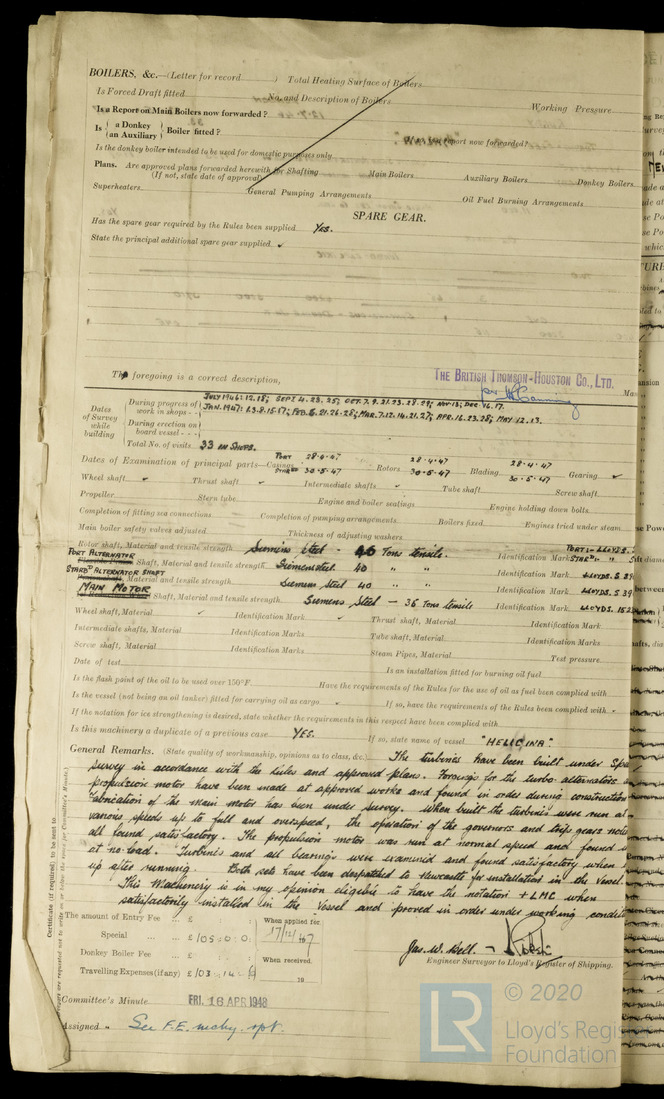 BOILERS, &c.—(Letter for record ) Total Heating Surface of Boilers
Is Forced Draft fitted No. and Description of Boilers Working Pressure
Is a Report on Main Boilers now forwarded?
Is { a Donkey / an Auxiliary } Boiler fitted? report now forwarded?
Is the donkey boiler intended to be used for domestic purposes only
Plans. Are approved plans forwarded herewith for Shafting Main Boilers Auxiliary Boilers Donkey Boilers
(If not, state date of approval)
Superheaters General Pumping Arrangements Oil Fuel Burning Arrangements
SPARE GEAR.
Has the spare gear required by the Rules been supplied YES.
State the principal additional spare gear supplied
The foregoing is a correct description,
THE BRITISH THOMSON-HOUSTON CO., LTD.
Dates of Survey while building
During progress of work in shops - - JULY 1946: 12. 18; SEPT 4. 23. 25; OCT. 7. 9. 21. 23. 28. 29; NOV. 13; DEC 16. 17.
JAN. 1947: 1.3.8.15.17; FEB. 5. 21. 26. 28; MAR. 7. 12. 14. 21. 27; APR. 16. 23. 28; MAY 12. 13.
During erection on board vessel - - -
Total No. of visits 33 IN SHOPS.
Dates of Examination of principal parts—Casings PORT 28.4.47 Rotors 28.4.47 Blading 28.4.47 Gearing
STARBD 30.5.47 30.5.47 30.5.47
Wheel shaft Thrust shaft Intermediate shafts Tube shaft Screw shaft
Propeller Stern tube Engine and boiler seatings Engine holding down bolts
Completion of fitting sea connections Completion of pumping arrangements Boilers fixed Engines tried under steam
Main boiler safety valves adjusted Thickness of adjusting washers
Rotor shaft, Material and tensile strength Siemens Steel - 40 Tons tensile. Identification Mark PORT:- LLOYDS
STARD:- "
PORT ALTERNATOR Shaft, Material and tensile strength Siemens steel 40 " " Identification Mark LLOYDS. S
STARBD ALTERNATOR SHAFT, Material and tensile strength Siemens steel 40 " " Identification Mark LLOYDS. S
MAIN MOTOR Shaft, Material and tensile strength Siemens Steel - 36 Tons tensile Identification Mark LLOYDS.
Wheel shaft, Material Identification Mark Thrust shaft, Material Identification Mark
Intermediate shafts, Material Identification Marks Tube shaft, Material Identification Mark
Screw shaft, Material Identification Marks Steam Pipes, Material Test pressure
Date of test Is an installation fitted for burning oil fuel
Is the flash point of the oil to be used over 150°F. Have the requirements of the Rules for the use of oil as fuel been complied with
Is the vessel (not being an oil tanker) fitted for carrying oil as cargo If so, have the requirements of the Rules been complied with
If the notation for ice strengthening is desired, state whether the requirements in this respect have been complied with
Is this machinery a duplicate of a previous case YES. If so, state name of vessel "HELICINA".
General Remarks. (State quality of workmanship, opinions as to class, &c.) The turbines have been built under
survey in accordance with the Rules and approved plans. Forgings for the turbo alternators
propulsion motor have been made at approved works and found in order during construction
Fabrication of the main motor has been under survey. When built the turbines were run at
various speeds up to full and overspeed, the operation of the governors and trips gears
all found satisfactory. The propulsion motor was run at normal speed and found
at no-load. Turbines and all bearings were examined and found satisfactory when
up after running. Both sets have been despatched to Newcastle for installation in the vessel
This Machinery is in my opinion eligible to have the notation + LMC when
satisfactorily installed in the vessel and proved in order under working
Certificate (if required) to be sent to
The amount of Entry Fee ... £ When applied for
Special ... £ 105 : 0 : 0 17/12/47
Donkey Boiler Fee ... £ When received.
Travelling Expenses (if any) £ 103 : 14 : 19
Jas. W. Bell.
Engineer Surveyor to Lloyd's Register of Shipping.
Committee's Minute FRI. 16 APR 1948
Assigned See F.E. mchy. rpt.
LR
© 2020
Lloyd's Regis
Foundation